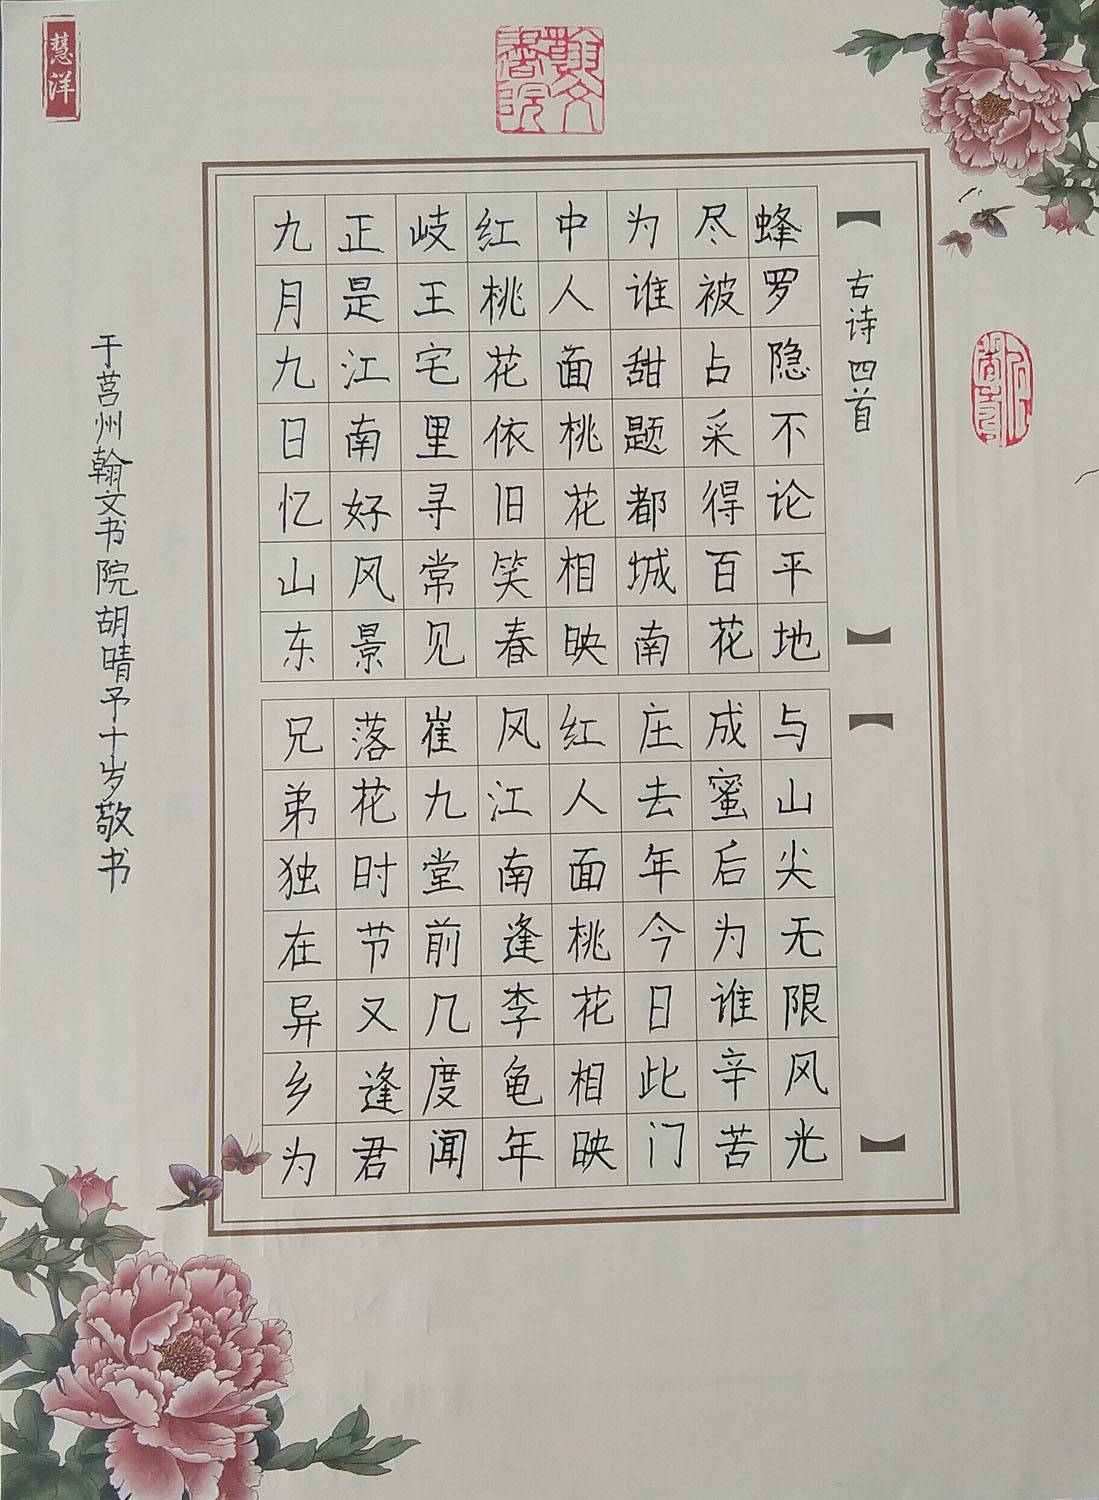 慧洋
翰文书院
古诗四首
蜂罗隐不论平地与山尖无限风光
尽被占采得百花成蜜后为谁辛苦
为谁甜题都城南庄去年今日此门
中人面桃花相映红人面桃花相映
红桃花依旧笑春风江南逢李龟年
岐王宅里寻常见崔九堂前几度闻
正是江南好风景落花时节又逢君
九月九日忆山东兄弟独在异乡为
于莒州翰文书院胡晴予十岁敬书